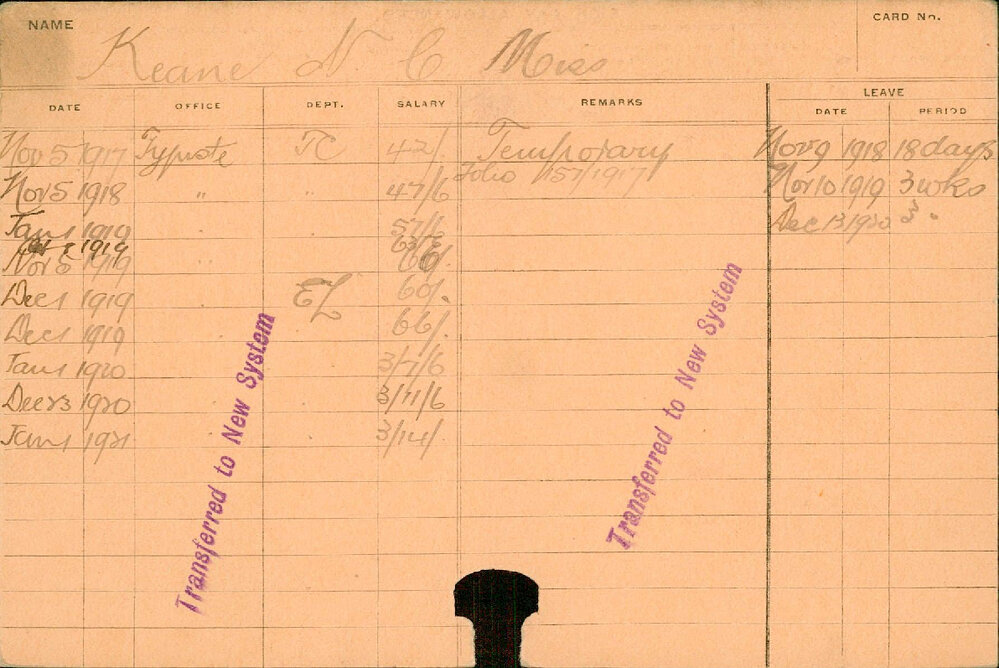 NAME
CARD No.
Keane N C Miss
LEAVE
DATE OFFICE DEPT. SALARY REMARKS DATE PERIOD
Nov 5 1917 Typiste TC 42/ Temporary Nov 9 1918 18 days
Folio 157/1917
Nov 5 1918 " " 47/6 Nov 10 1919 3 wks
Jan 1 1919 57/6 Dec 13 1920 3 "
1919 63/6
Nov 5 1919 66/
Dec 1 1919 EL 60/.
Dec 1 1919 66/.
Jan 1 1920 3/7/6
Dec 23 1920 3/11/6
Jan 1 1921 3/14/
Transferred to New System
Transferred to New System